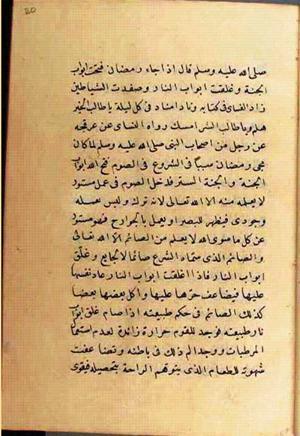 صلى الله عليه وسلم قال اذا جاء رمضان فتحت ابواب
الجنة وغلقت ابواب النار وصفدت الشياطين
زاد النساى فى كتابه ونادا مناد فى كل ليلة يا طالب الخير
هلم ويا طالب الشر امسك رواه النساى عن عرفجة
عن رجل من اصحاب النبى صلى الله عليه وسلم لما كان
مجى رمضان سببا فى الشروع فى الصوم فتح الله ابواب
الجنة والجنة الستر فدخل الصوم فى عمل مستور
لا يعلمه منه الا الله تعالى لانه ترك وليس بعمله
وجودى فيظهر للبصر او يعمل بالجوارح فهو مستور
عن كل ما سوى الله لا يعلمه من الصائم الا الله تعالى
والصائم الذى سماه الشرع صائما لا الجايع وغلق
ابواب النار فاذا اغلقت ابواب النار عاد نفسها
عليها فيضاعف حرها عليها واكل بعضها بعضا
كذلك الصائم فى حكم طبيعته اذا صام غلق ابواب
نار طبيعته فوجد للصوم حرارة زائدة لعدم استعمال
المرطبات ووجد الم ذلك فى باطنه وتضاعفت
شهوته للطعام الذى يتوهم الراحة بتحصيله فيقوى